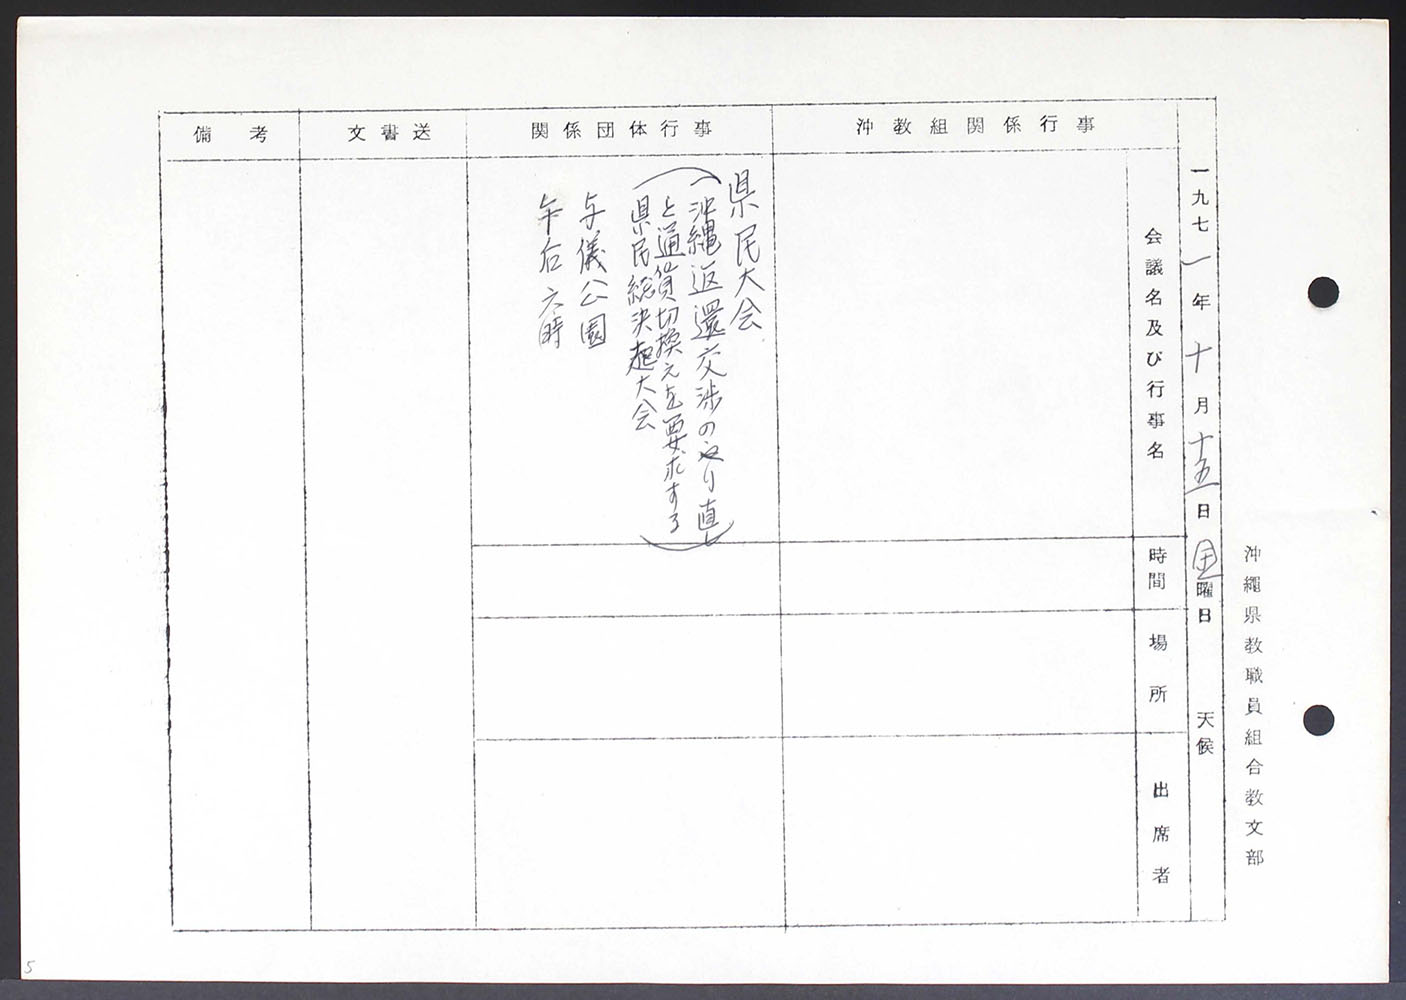 沖繩県教職員組合教文部
一九七一年十月十五日金曜日　天候
会議名及び行事名
時間
場所
出席者
沖教組関係行事
関係団体行事
県民大会
(沖縄返還交渉のやり直し
と通貨切換えを要求する
県民総決起大会)
与儀公園
午后六時
文書送
備考
5